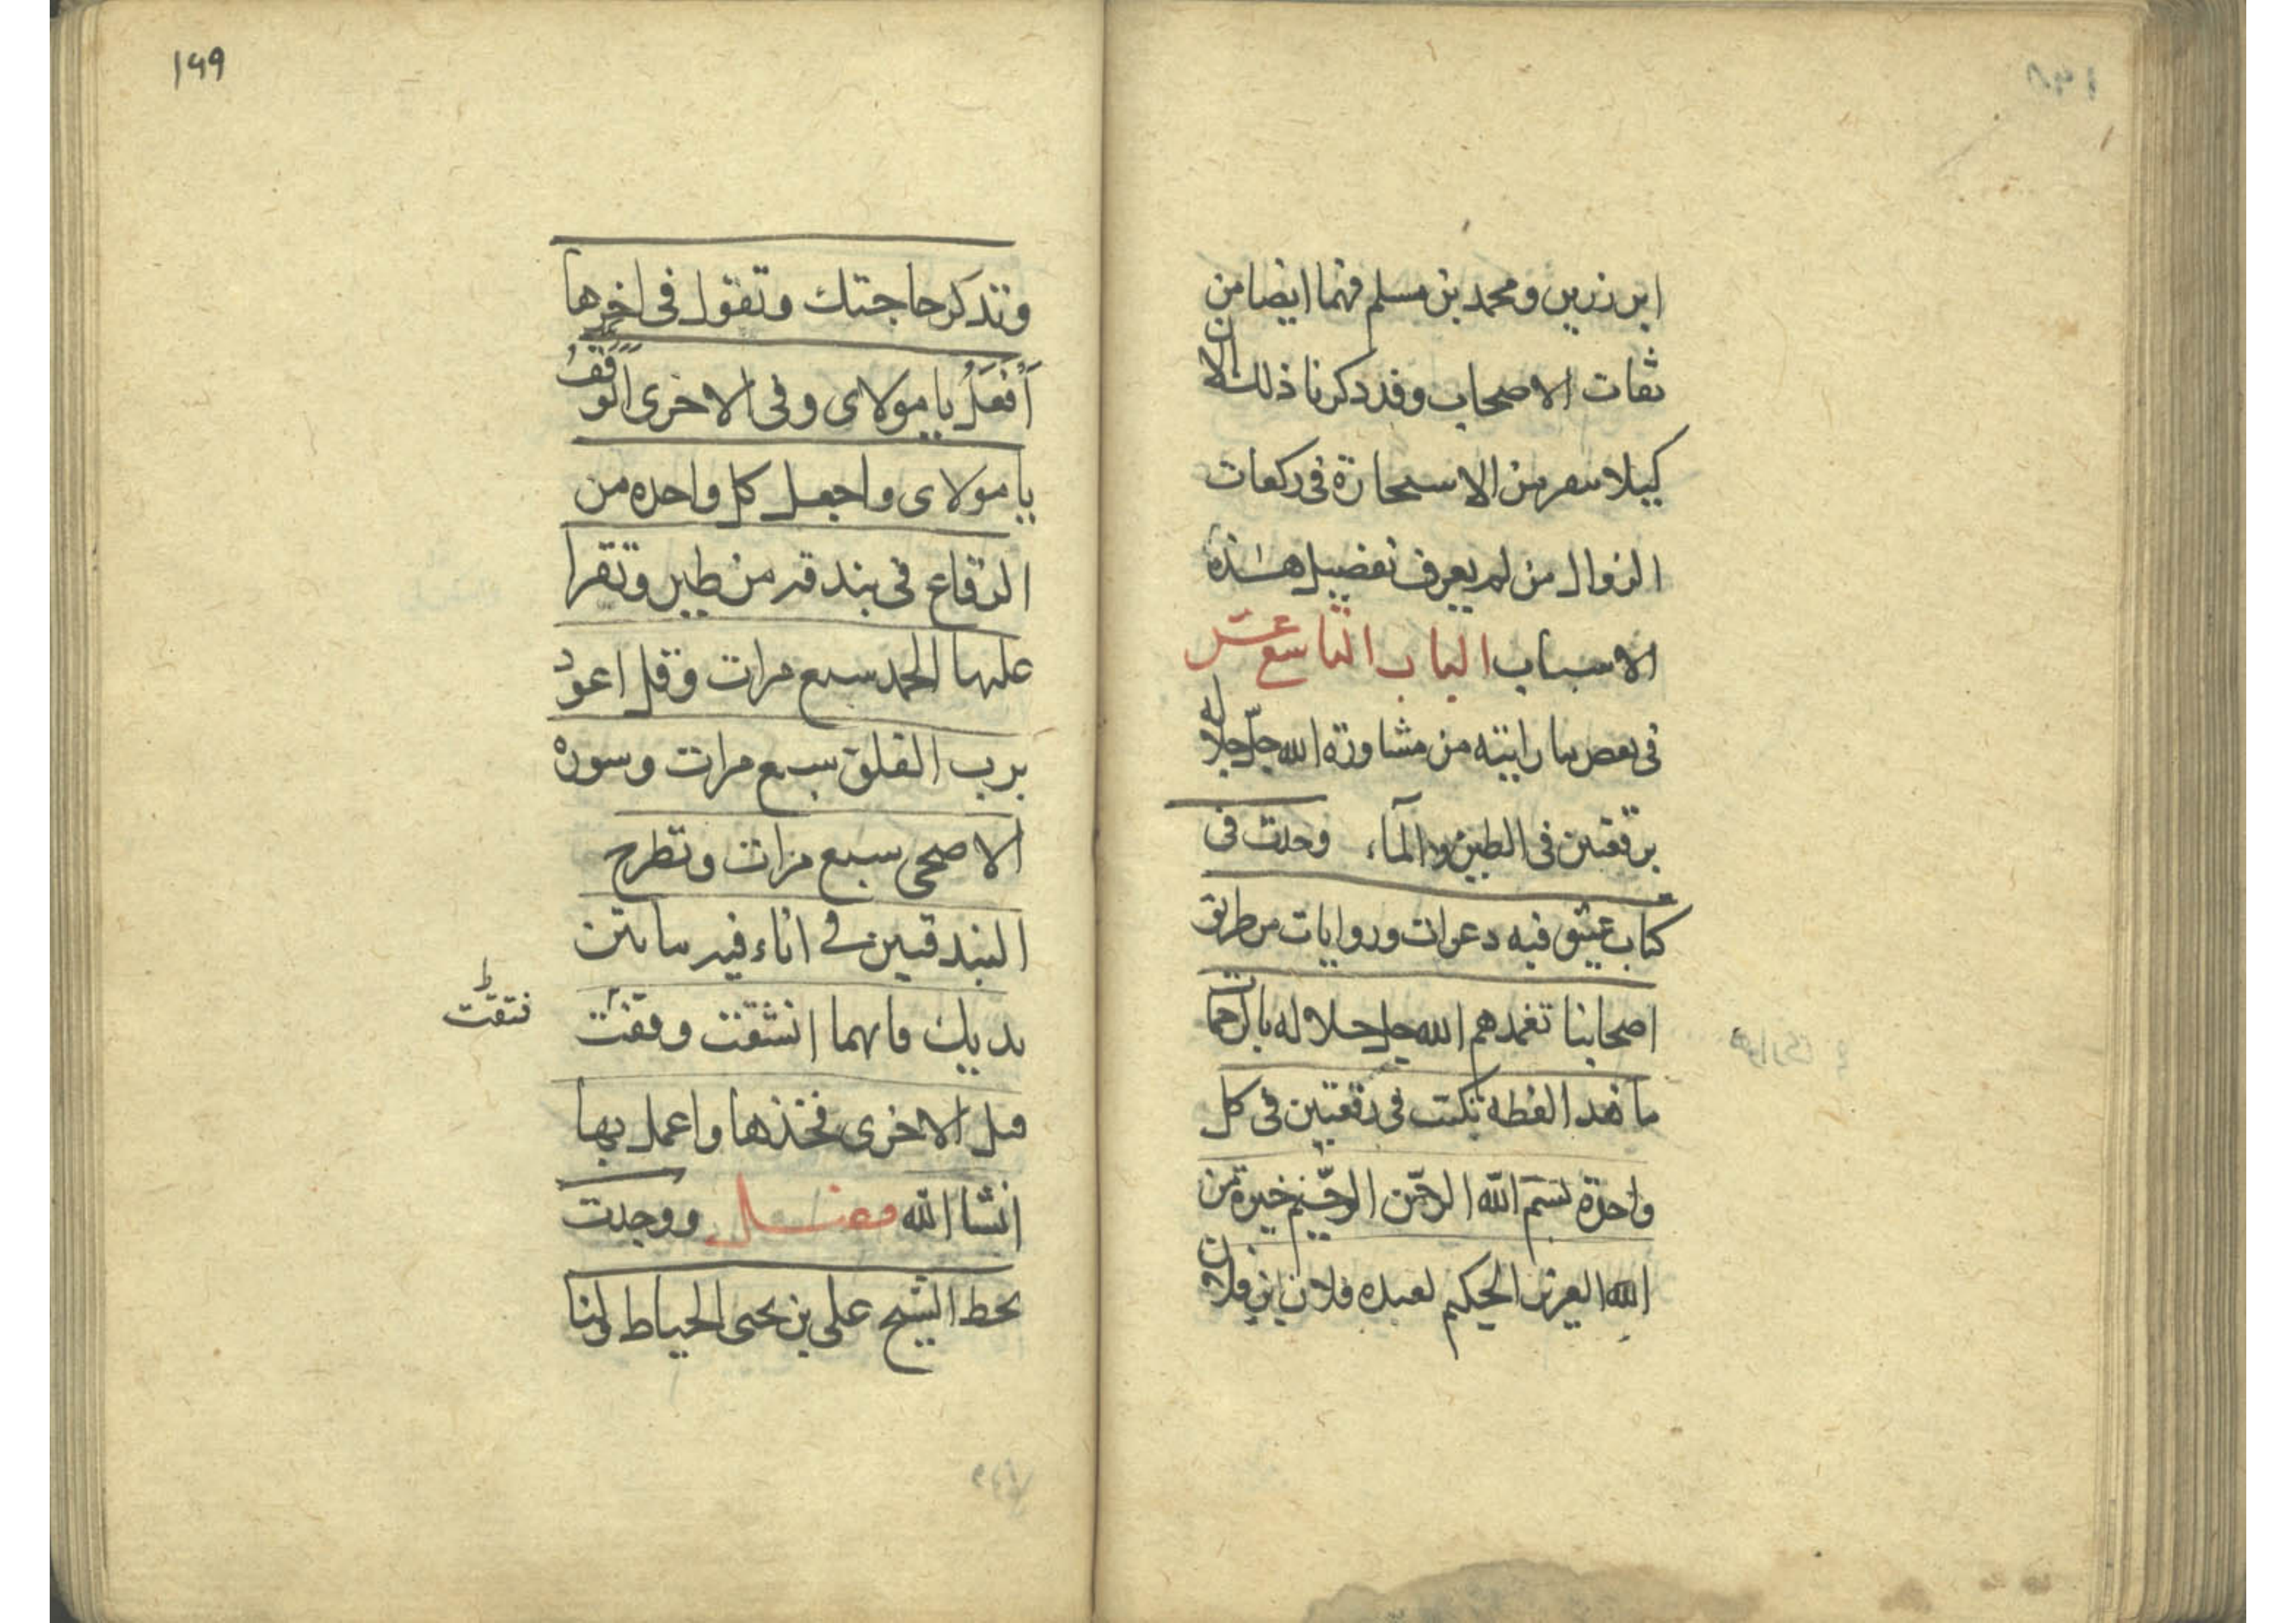 ابن رزين ومحمد بن مسلم فهما ايضا من
ثقات الاصحاب وقد ذكرنا ذلك الان
كيلا ينفر من الاستخارة في ركعات
الزوال من لم يعرف تفضيل هذه
الاسباب الباب التاسع عشر
في بعض ما رايته من مشاورة الله جلّ جلاله
برقعتين في الطين والمآء وجدت في
كتاب عتيق فيه دعوات وروايات من طريق
اصحابنا تغمدهم الله جل جلاله بالرحمات
ما هذا لفظه تكتب في رقعتين في كل
واحدة بسم الله الرحمن الرحيم خيرة من
الله العزيز الحكيم لعبده فلان بن فلان
١٩٩
وتذكر حاجتك وتقول في اخرها
أفعلُ يا مولاى وفى الاخرى أتوقفُ
يا مولاى واجعل كل واحده من
الرقاع فى بندقه من طين وتقرا
عليها الحمد سبع مرات وقل اعوذ
برب الفلق سبع مرات وسوره
الاضحى سبع مرات وتطرح
البندقتين في اناء فيه ما بين
يديك فايهما انشقت وقفت
فتقت ط
قبل الاخرى فخذها واعمل بها
انشا الله فصل ووجدت
بخط الشيخ علي بن يحيى الحياط ولنا